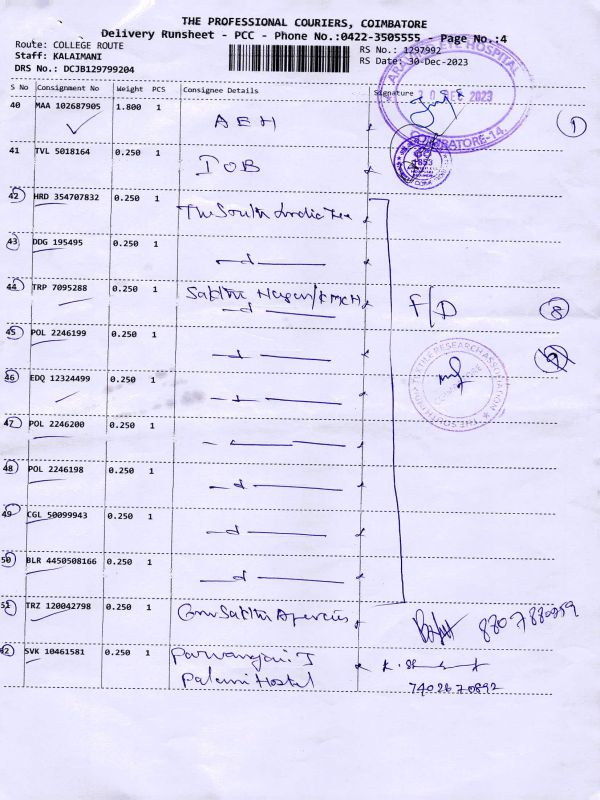 THE PROFESSIONAL COURIERS, COIMBATORE
Delivery Runsheet - PCC - Phone No.:0422-3505555 - Page No.:4
Route: COLLEGE ROUTE
Staff: KALAIMANI
DRS No.: DCJB129799204
RS No.: 1297992
RS Date: 30-Dec-2023
S No Consignment No Weight PCS Consignee Details Signature
40 MAA 102687905 1.800 1 AEH
EYE HOSPITAL
DEC 2023
COIMBATORE-14.
1
41 TVL 5018164 0.250 1 IOB
1853
42 HRD 354707832 0.250 1 The South India
43 DDG 195495 0.250 1
44 TRP 7095288 0.250 1 Sakthi
F/D 8
45 POL 2246199 0.250 1
46 EDQ 12324499 0.250 1
THE SOUTH INDIA TEXTILE RESEARCH ASSOCIATION
47 POL 2246200 0.250 1
48 POL 2246198 0.250 1
49 CGL 50099943 0.250 1
50 BLR 4450508166 0.250 1
51 TRZ 120042798 0.250 1 Sakthi Agencies
SVK 10461581 0.250 1
Hostel 7402670892